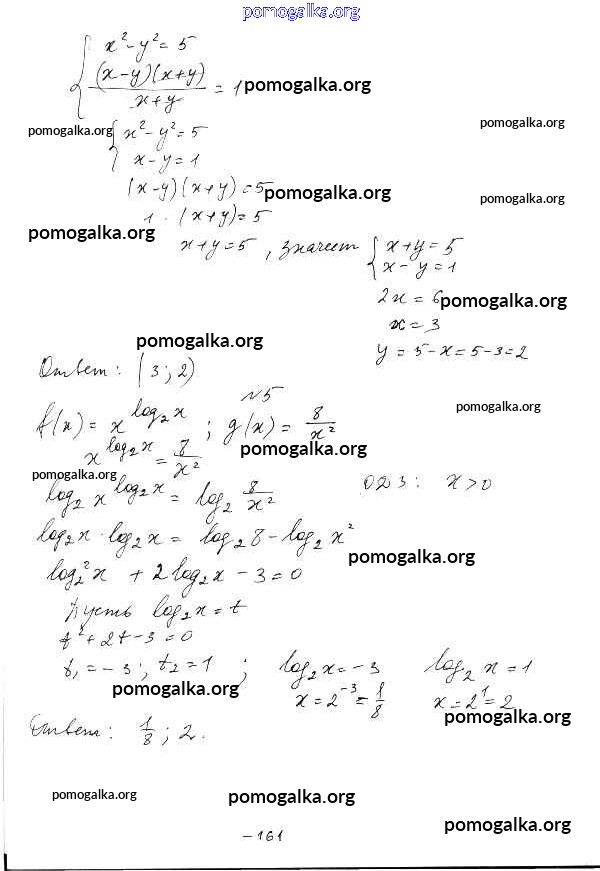 pomogalka.org
x² - y² = 5
(x-y)(x+y) / x+y = 1 pomogalka.org
pomogalka.org x² - y² = 5 pomogalka.org
x - y = 1
(x-y)(x+y) = 5 pomogalka.org pomogalka.org
1 · (x+y) = 5
pomogalka.org x+y=5, значит x+y=5
x-y=1
2x = 6 pomogalka.org
x = 3
pomogalka.org
y = 5-x = 5-3=2
Ответ: (3; 2)
№5
f(x) = x^log₂x ; g(x) = 8/x² pomogalka.org
x^log₂x = 8/x² pomogalka.org
pomogalka.org
log₂ x^log₂x = log₂ 8/x² ОДЗ: x>0
log₂x · log₂x = log₂8 - log₂x²
pomogalka.org
log₂²x + 2log₂x - 3 = 0
Пусть log₂x = t
t² + 2t - 3 = 0
t₁ = -3; t₂ = 1 ; log₂x = -3 log₂x = 1
pomogalka.org x = 2⁻³ = 1/8 x = 2¹ = 2
pomogalka.org
Ответ: 1/8 ; 2.
pomogalka.org pomogalka.org
pomogalka.org
-161